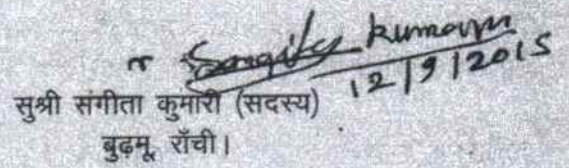 Sangita kumari
12/9/2015
सुश्री संगीता कुमारी (सदस्य)
बुढ़मू, राँची।